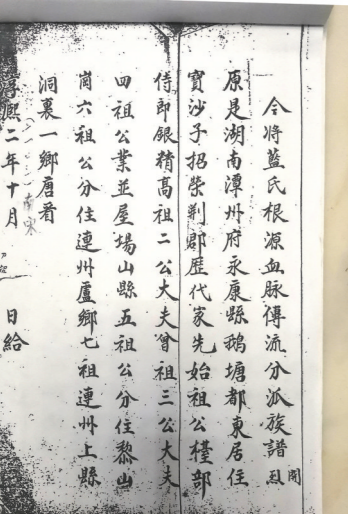 今將藍氏根源血脉傳流分派族譜烈
開
原是湖南潭州府永康縣鵝塘都東居住
寳沙子招榮荆郡歷代家先始祖公檯部
侍郎銀精髙祖二公大夫曾祖三公大夫
四祖公業並屋場山縣五祖公分住黎山
崗六祖公分住連州廬鄉七祖連州上縣
洞裏一鄉唐看
淳熙二年十月 日給
南宋